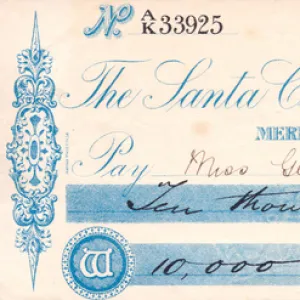 No A/K 33925
The Santa C
MER
Pay Miss Ge
Ten thou
W 10,000